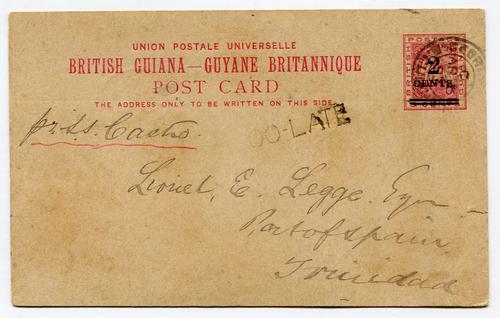 UNION POSTALE UNIVERSELLE
BRITISH GUIANA—GUYANE BRITANNIQUE
POST CARD
THE ADDRESS ONLY TO BE WRITTEN ON THIS SIDE.
BRITISH
2
CENTS.
pr. s.s. Castro.
OO-LATE
Lionel, E. Legge. Esqre
Port of Spain
Trinidad